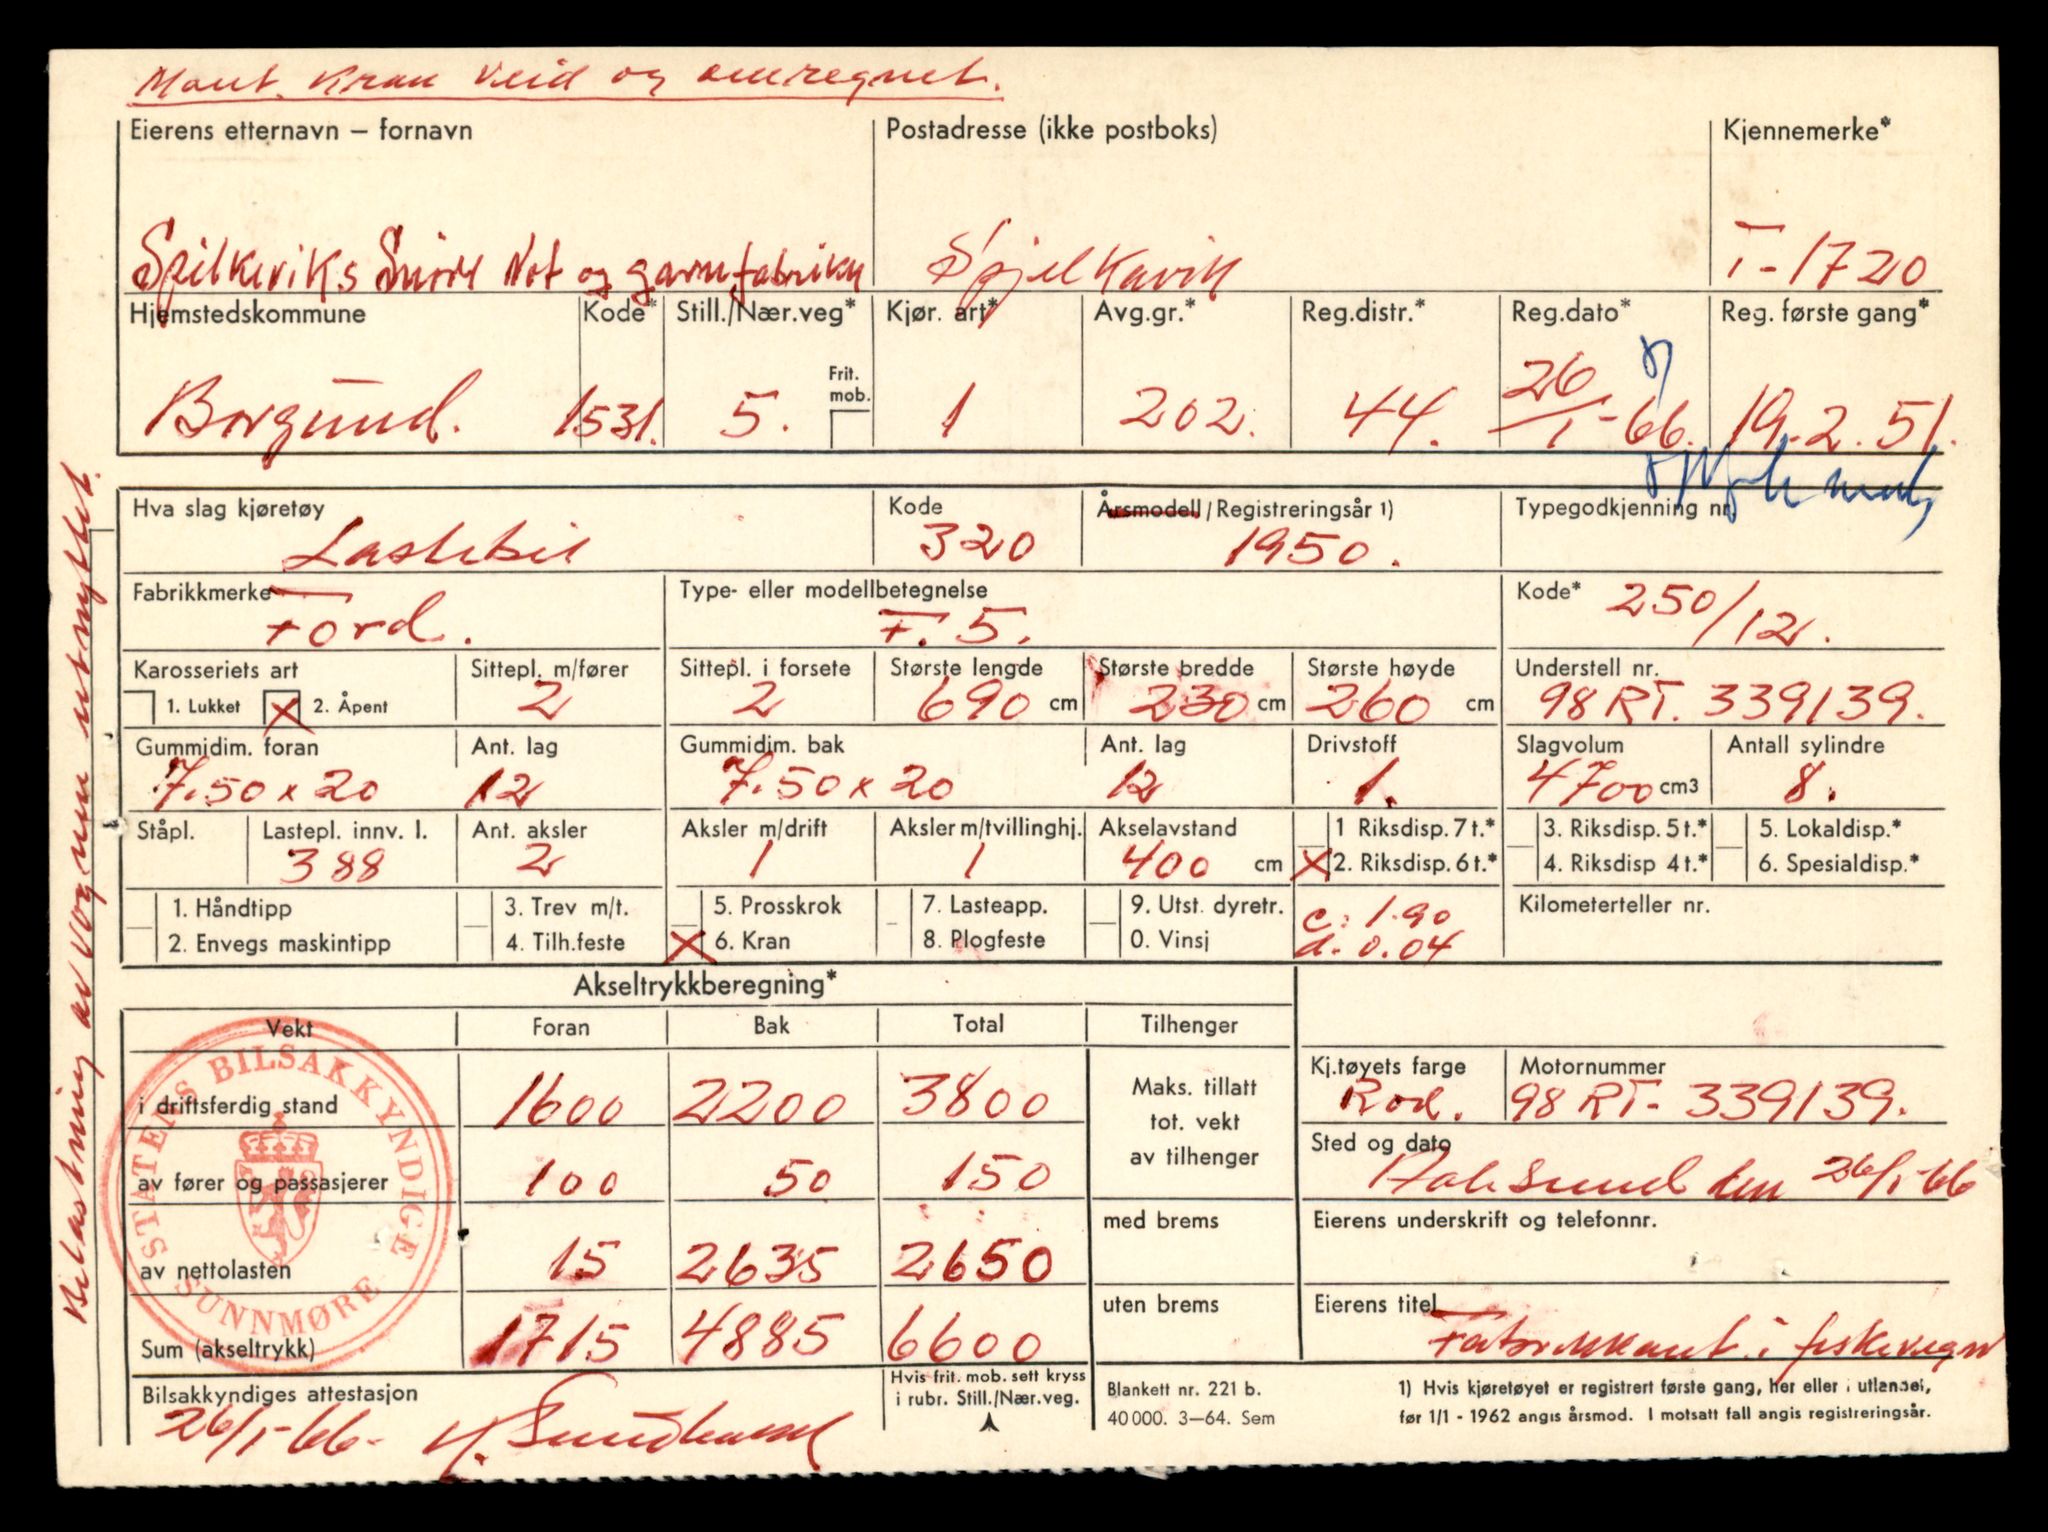 Mont. Kran Veid og omregnet.
Eierens etternavn – fornavn
Postadresse (ikke postboks)
Kjennemerke*
Spilkeviks Snøre Not og garnfabrikk
Spjelkavik
T-1720
Hjemstedskommune
Kode*
Still./Nær.veg*
Kjør. art*
Avg.gr.*
Reg.distr.*
Reg.dato*
Reg. første gang*
Borgund.
1531.
5.
Frit. mob.
1
202.
44.
26/1-66.
19.2.51.
Hva slag kjøretøy
Kode
Årsmodell/Registreringsår 1)
Typegodkjenning nr.
Lastebil
320
1950.
Fabrikkmerke
Type- eller modellbetegnelse
Kode*
250/12.
Ford.
F. 5.
Karosseriets art
Sittepl. m/fører
Sittepl. i forsete
Største lengde
Største bredde
Største høyde
Understell nr.
1. Lukket
X 2. Åpent
2
2
690 cm
230 cm
260 cm
98 RT. 339139.
Gummidim. foran
Ant. lag
Gummidim. bak
Ant. lag
Drivstoff
Slagvolum
Antall sylindre
7.50 x 20
12
7.50 x 20
12
1.
4700 cm3
8.
Ståpl.
Lastepl. innv. l.
Ant. aksler
Aksler m/drift
Aksler m/tvillinghj.
Akselavstand
1 Riksdisp. 7 t.*
3. Riksdisp. 5 t.*
5. Lokaldisp.*
388
2
1
1
400 cm
X 2. Riksdisp. 6 t.*
4. Riksdisp 4 t.*
6. Spesialdisp.*
1. Håndtipp
3. Trev m/t.
5. Prosskrok
7. Lasteapp.
9. Utst. dyretr.
c: 1.90
Kilometerteller nr.
2. Envegs maskintipp
4. Tilh.feste
X 6. Kran
8. Plogfeste
0. Vinsj
d. 0.04
Akseltrykkberegning*
Vekt
Foran
Bak
Total
Tilhenger
i driftsferdig stand
1600
2200
3800
Maks. tillatt
tot. vekt
av tilhenger
Kj.tøyets farge
Motornummer
Rød.
98 RT- 339139.
av fører og passasjerer
100
50
150
Sted og dato
Aalesund den 26/1-66
av nettolasten
15
2635
2650
med brems
Eierens underskrift og telefonnr.
Sum (akseltrykk)
1715
4885
6600
uten brems
Eierens titel
Fabrikkant i fiskevegn
Bilsakkyndiges attestasjon
26/1-66-
Hvis frit. mob. sett kryss
i rubr. Still./Nær.veg.
Blankett nr. 221 b.
40 000. 3—64. Sem
1) Hvis kjøretøyet er registrert første gang, her eller i utlandet,
før 1/1 - 1962 angis årsmod. I motsatt fall angis registreringsår.
STATENS BILSAKKYNDIGE
SUNNMØRE
Belastning av vognen utnyttet.